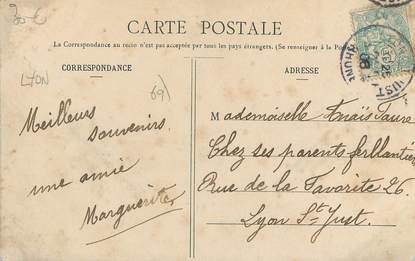 30 €
CARTE POSTALE
La Correspondance au recto n'est pas acceptée par tous les pays étrangers. (Se renseigner à la Poste
CORRESPONDANCE
ADRESSE
LYON
69)
Meilleurs
souvenirs
une amie
Marguerite
Mademoiselle Anaïs Faure
Chez ses parents ferblantier
Rue de la Favorite 26.
Lyon St Just.
JUST
RHONE